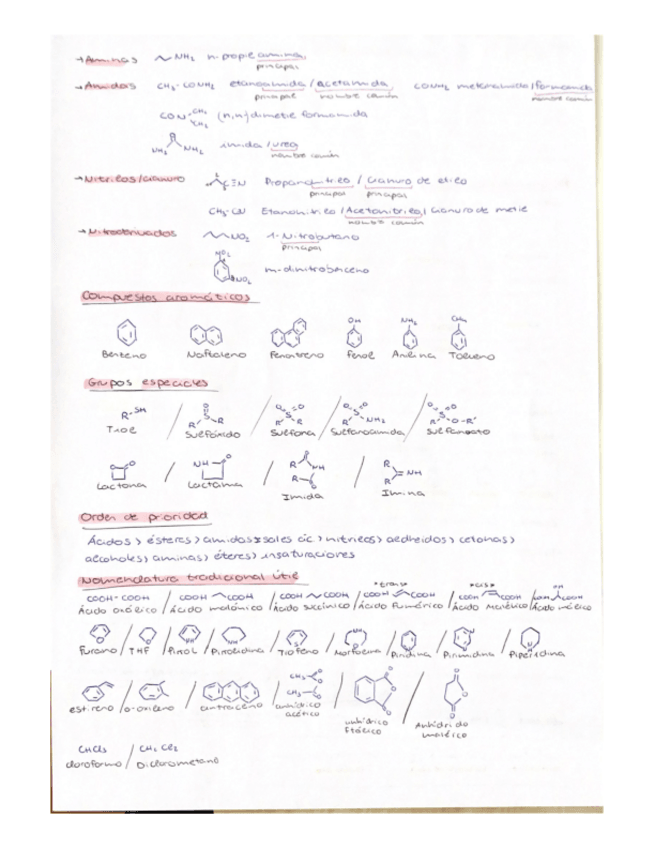 → Aminas NH₂ n-propil amina
principal
→ Amidas CH₃-CONH₂ etanoamida / acetamida CONH₂ metanamida / formamida
principal nombre común nombre común
CON CH₃ CH₃ (n,n) dimetil formamida
O NH₂ NH₂ imida / urea
nombre común
→ Nitrilos/cianuro C≡N Propanonitrilo / Cianuro de etilo
principal principal
CH₃-CN Etanonitrilo / Acetonitrilo / Cianuro de metilo
nombre común
→ Nitroderivados NO₂ 1-Nitrobutano
principal
NO₂ NO₂ m-dinitrobenceno
Compuestos aromáticos
OH NH₂ CH₃
Benceno Naftaleno Fenantreno Fenol Anilina Tolueno
Grupos especiales
R-SH / O S R R / O O S R R' / O O S R NH₂ / O O S R O-R'
Tiol Sulfóxido Sulfona Sulfonamida Sulfonato
O O / NH O / R O NH R O / R R =NH
Lactona Lactama Imida Imina
Orden de prioridad
Ácidos > ésteres > amidas = sales ác. > nitrilos > aldheidos > cetonas >
alcoholes > aminas > éteres > insaturaciones
Nomenclatura tradicional útil
*trans* *cis* OH
COOH-COOH / COOH COOH / COOH COOH / COOH COOH / COOH COOH
Ácido oxálico / Ácido malónico / Ácido succínico / Ácido fumárico / Ácido maleico / Ácido málico
Furano / THF / Pirrol / Pirrolidina / Tiofeno / Morfolina / Piridina / Pirimidina / Piperidina
CH₃ O O CH₃ O
estireno / o-xileno / antraceno / anhídrico acético / anhídrico ftálico / Anhídrido maleico
CHCl₃ / CH₂Cl₂
cloroformo / Diclorometano